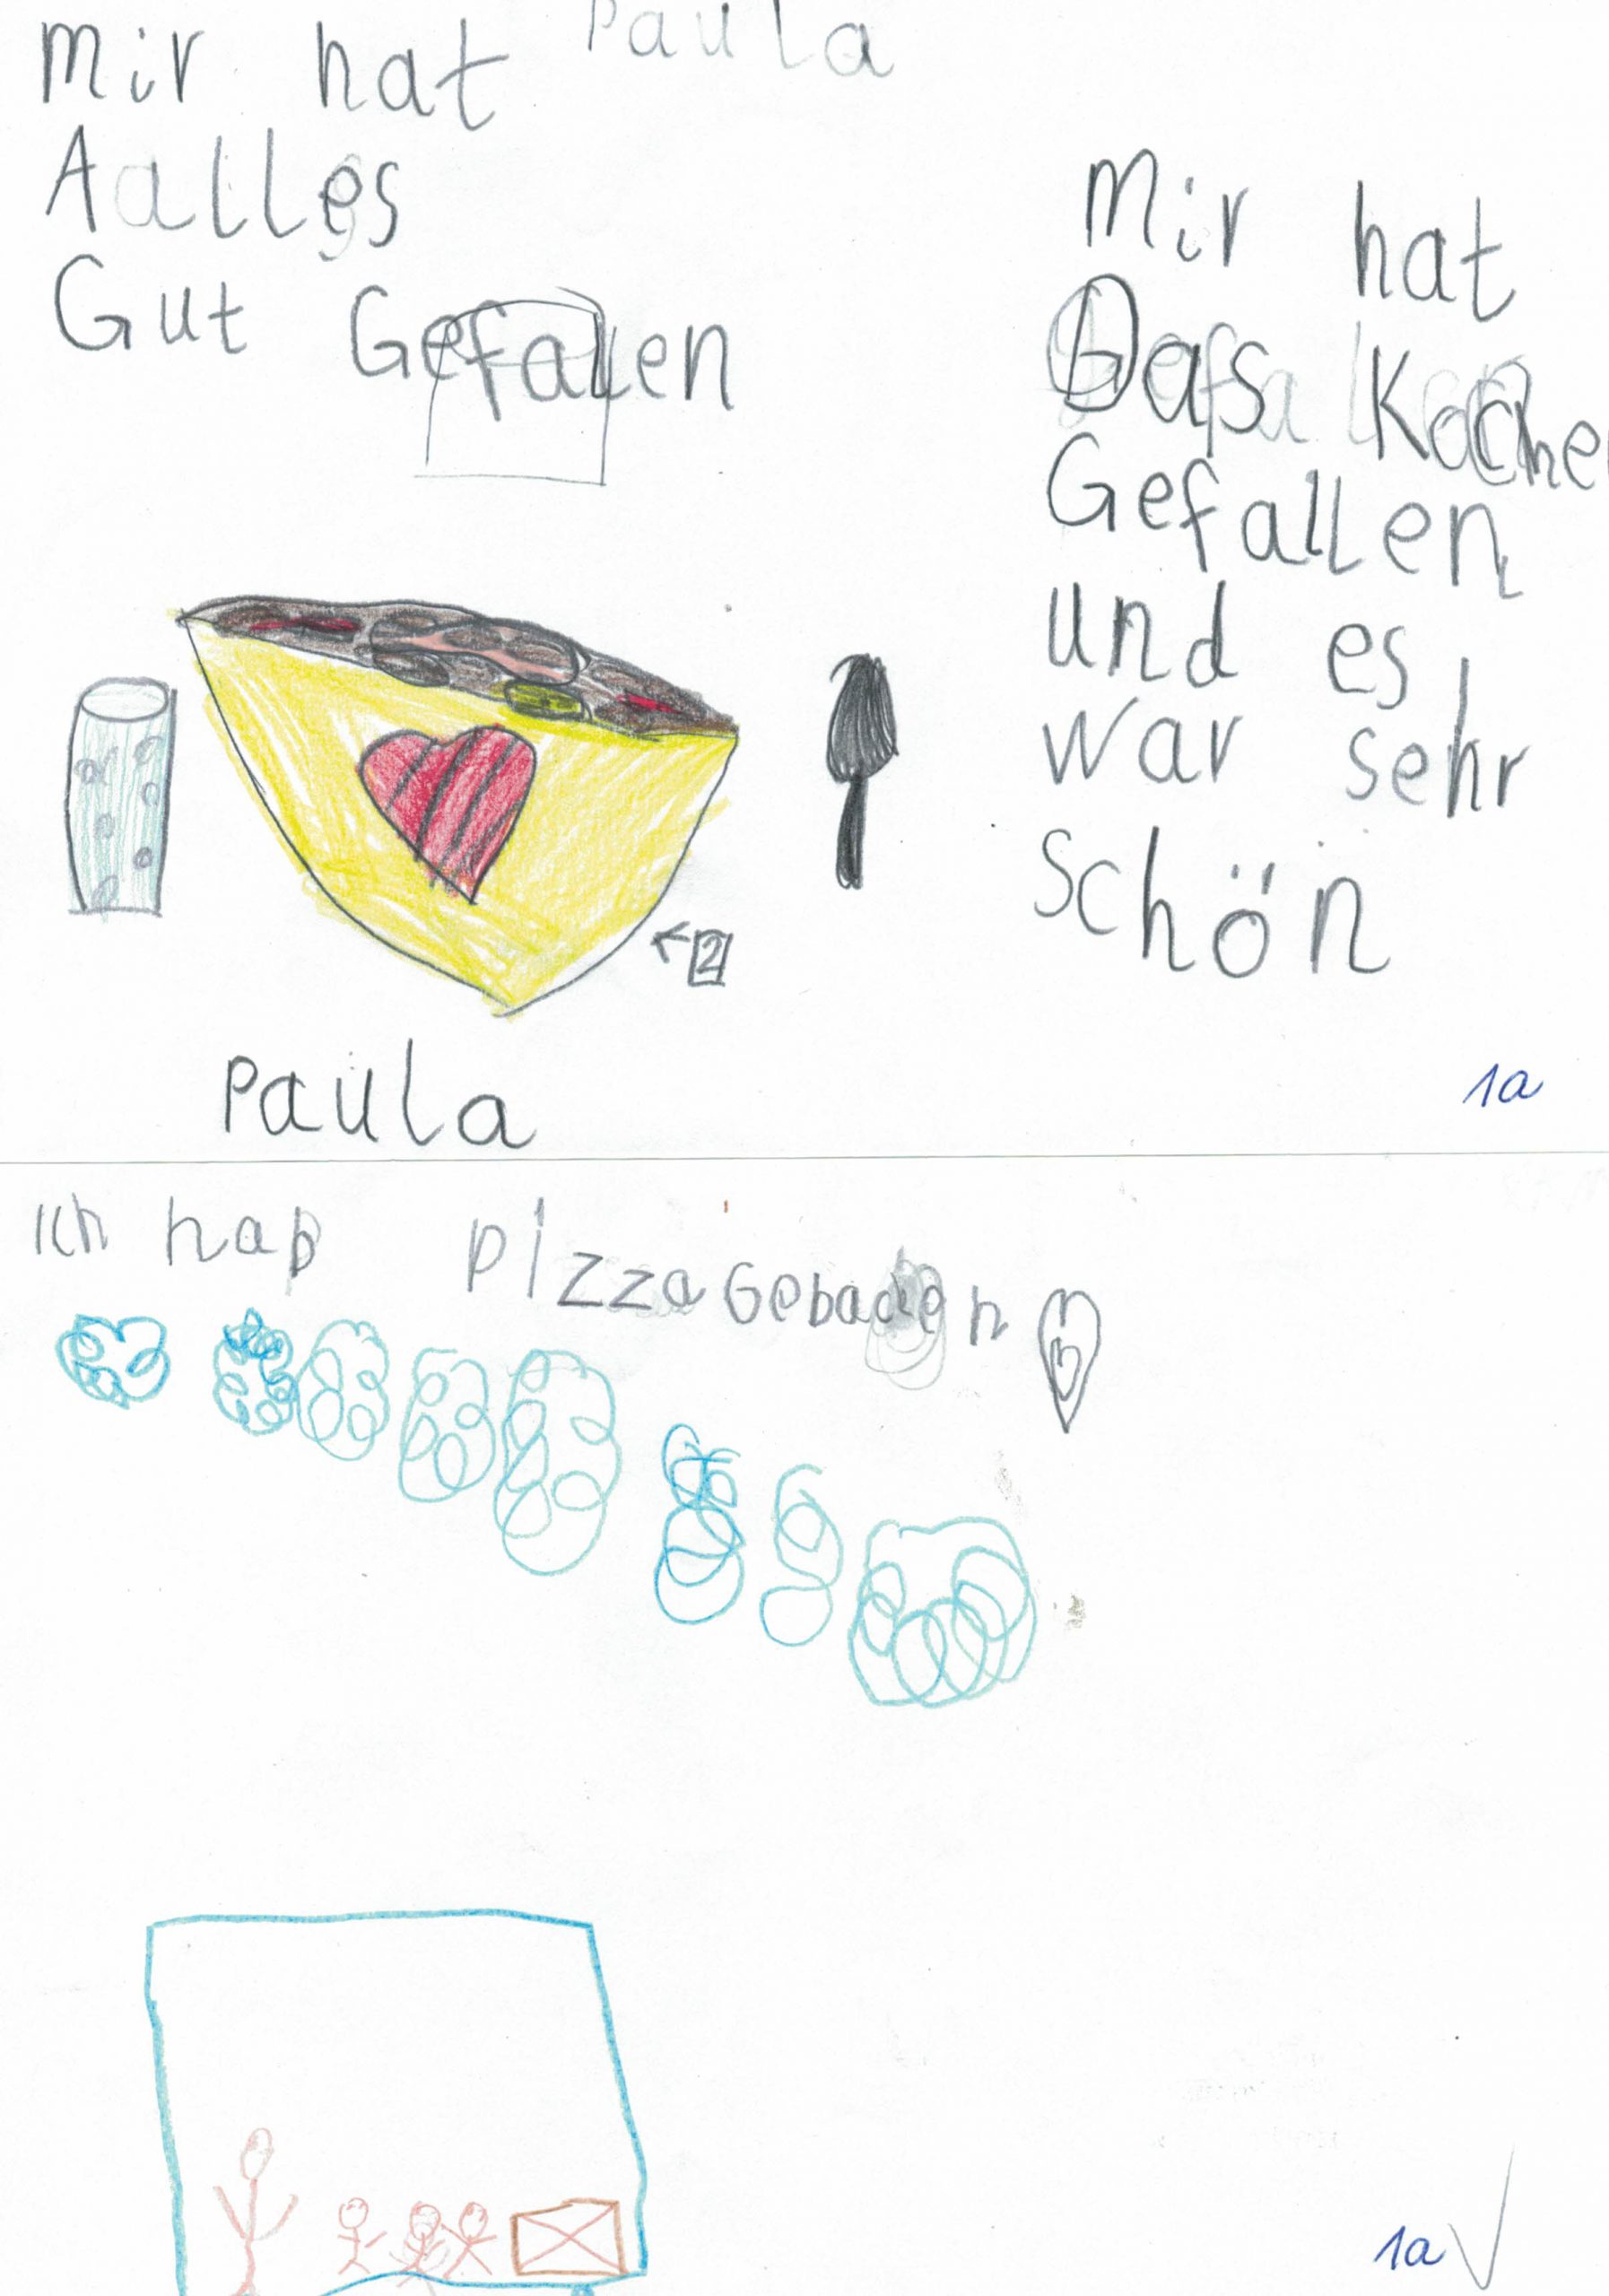 Paula
Mir hat
Aalles
Gut Gefallen
Mir hat
Das Kochen
Gefallen
und es
war sehr
schön
2
Paula
1a
Ich hap pizza Gebaden
1a